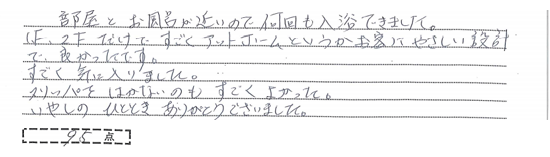 部屋とお風呂が近いので何回も入浴できました。
1F、2Fだけですごくアットホームというかお客にやさしい設計
で、良かったです。
すごく気に入りました。
スリッパをはかないのもすごくよかった。
いやしのひとときありがとうございました。
95点